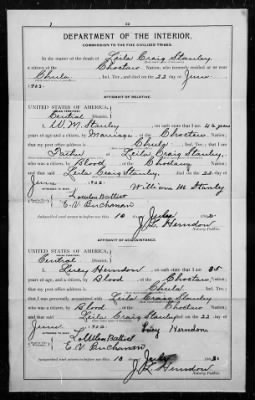 DEPARTMENT OF THE INTERIOR,
COMMISSION TO THE FIVE CIVILIZED TRIBES.
In the matter of the death of Leila Craig Stanley
a citizen of the Choctaw Nation, who formerly resided at or near
Chula, Ind. Ter., and died on the 22 day of June,
1902.
AFFIDAVIT OF RELATIVE.
UNITED STATES OF AMERICA,
Indian Territory,
Central District.
I, W. M. Stanley, on oath state that I am 42
years of age and a citizen by Marriage of the Choctaw Nation;
that my post office address is Chula, Ind. Ter.; that I am
Father of Leila Craig Stanley,
who was a citizen, by Blood, of the Choctaw Nation,
and that said Leila Craig Stanley died on the 22 day of
June, 1902.
William M Stanley
E V Buchanan
Subscribed and sworn to before me this 10 day of July 1902.
J G Herndon
Notary Public.
AFFIDAVIT OF ACQUAINTANCE.
UNITED STATES OF AMERICA,
Indian Territory,
Central District.
I, Lucy Herndon, on oath state that I am 35
years of age, and a citizen by Blood of the Choctaw Nation;
that my post office address is Chula, Ind. Ter.;
that I was personally acquainted with Leila Craig Stanley
who was a citizen, by Blood, of the Choctaw Nation,
and that said Leila Craig Stanley died on the 22 day of
June, 1902.
Lucy Herndon
E V Buchanan
Subscribed and sworn to before me this 10 day of July 1902.
J G Herndon
Notary Public.